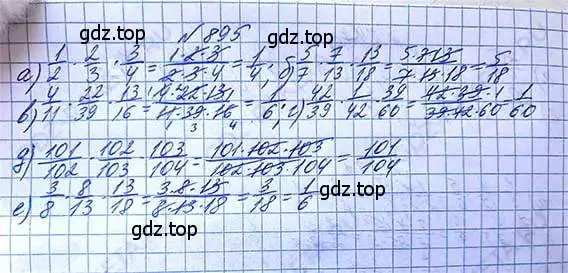 № 895
а) 1/2 · 2/3 · 3/4 = 1·2·3/2·3·4 = 1/4; б) 5/7 · 7/13 · 13/18 = 5·7·13/7·13·18 = 5/18
в) 4/11 · 22/39 · 13/16 = 4·22·13/11·39·16 = 1/6; г) 42/39 · 1/42 · 39/60 = 42·39·1/39·42·60 = 1/60
д) 101/102 · 102/103 · 103/104 = 101·102·103/102·103·104 = 101/104
е) 3/8 · 8/13 · 13/18 = 3·8·13/8·13·18 = 3/18 = 1/6
gdz.top gdz.top
gdz.top gdz.top
gdz.top gdz.top